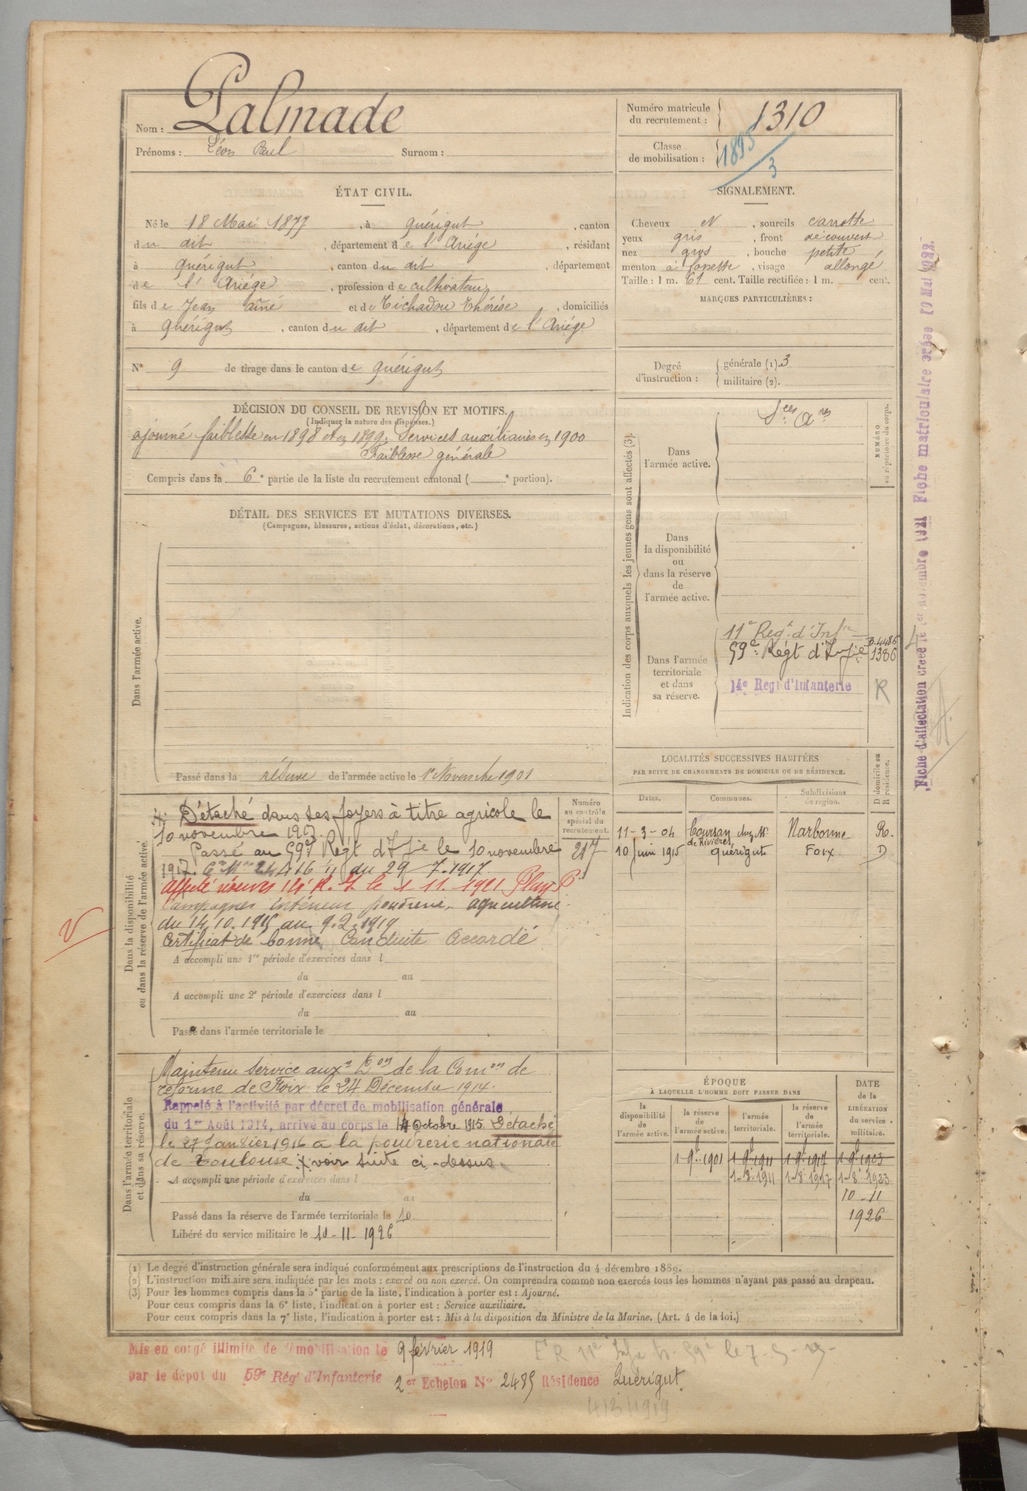 Nom : Palmade
Prénoms : Léon Paul Surnom :
Numéro matricule du recrutement : 1310
Classe de mobilisation : 1895 / 3
ÉTAT CIVIL.
Né le 18 Mai 1877, à Quérigut, canton
du dit, département de l'Ariège, résidant
à Quérigut, canton du dit, département
de l'Ariège, profession de cultivateur,
fils de Jean aîné et de Tichadou Thérèse, domiciliés
à Quérigut, canton du dit, département de l'Ariège
N° 9 de tirage dans le canton de Quérigut
SIGNALEMENT.
Cheveux N, sourcils carotte
yeux gris, front découvert
nez gros, bouche petite
menton à fossette, visage allongé
Taille : 1 m. 61 cent. Taille rectifiée : 1 m. cent.
MARQUES PARTICULIÈRES :
Degré d'instruction : générale (1) 3
militaire (2).
DÉCISION DU CONSEIL DE REVISION ET MOTIFS.
(Indiquez la nature des dispenses.)
ajourné faiblesse en 1898 et en 1899. Services auxiliaires en 1900
Faiblesse générale
Compris dans la 6e partie de la liste du recrutement cantonal ( e portion).
DÉTAIL DES SERVICES ET MUTATIONS DIVERSES.
(Campagnes, blessures, actions d'éclat, décorations, etc.)
Dans l'armée active.
Passé dans la réserve de l'armée active le 1er Novembre 1901
Indication des corps auxquels les jeunes gens sont affectés (3).
NUMÉRO au répertoire du corps.
Dans l'armée active.
Sces Ares
Dans la disponibilité ou dans la réserve de l'armée active.
Dans l'armée territoriale et dans sa réserve.
11e Regt d'Infie
59e Régt d'Infie 1386
14e Regt d'Infanterie R
Fiche d'affectation créée le 1er novembre 1921 Fiche matriculaire créée 10 Mai 1922
Dans la disponibilité ou dans la réserve de l'armée active.
Détaché dans ses foyers à titre agricole le
10 novembre 1917
Passé au 59e Régt d'Ifie le 10 novembre
1917. 4416 du 29-7-1917
Affecté réserves 14e R.I. le 1-11-1921
Campagnes Intérieur poudrerie, agriculture
du 14.10.1915 au 9.2.1919
Certificat de bonne Conduite Accordé
Numéro au contrôle spécial du recrutement.
217
A accompli une 1re période d'exercices dans l
du au
A accompli une 2e période d'exercices dans l
du au
Passé dans l'armée territoriale le
LOCALITÉS SUCCESSIVES HABITÉES
PAR SUITE DE CHANGEMENTS DE DOMICILE OU DE RÉSIDENCE.
Dates. Communes. Subdivisions de région. D domicile ou R résidence.
11-3-04 Coursan chez Mr de Rivières Narbonne Ro.
10 Juin 1915 Quérigut Foix D
Dans l'armée territoriale et dans sa réserve.
Maintenu service auxre Don de la Comon de
réforme de Foix le 24 Décembre 1914.
Rappelé à l'activité par décret de mobilisation générale
du 1er Août 1914, arrivé au corps le 14 Octobre 1915. Détaché
le 27 Janvier 1916 à la poudrerie nationale
de Toulouse. voir suite ci-dessus.
A accompli une période d'exercices dans l
du au
Passé dans la réserve de l'armée territoriale le 10
Libéré du service militaire le 10-11-1926
ÉPOQUE À LAQUELLE L'HOMME DOIT PASSER DANS
la disponibilité de l'armée active. la réserve de l'armée active. l'armée territoriale. la réserve de l'armée territoriale. DATE de la LIBÉRATION du service militaire.
1-9-1901 1-9-1911 1-9-1917 1-9-1923
1-8-1911 1-8-1917 1-8-1923
10-11
1926
(1) Le degré d'instruction générale sera indiqué conformément aux prescriptions de l'instruction du 4 décembre 1889.
(2) L'instruction militaire sera indiquée par les mots : exercé ou non exercé. On comprendra comme non exercés tous les hommes n'ayant pas passé au drapeau.
(3) Pour les hommes compris dans la 5e partie de la liste, l'indication à porter est : Ajourné.
Pour ceux compris dans la 6e liste, l'indication à porter est : Service auxiliaire.
Pour ceux compris dans la 7e liste, l'indication à porter est : Mis à la disposition du Ministre de la Marine. (Art. 4 de la loi.)
Mis en congé illimité de démobilisation le 9 février 1919
par le dépôt du 59e Rég' d'Infanterie 2er Echelon No 2485 Résidence Quérigut